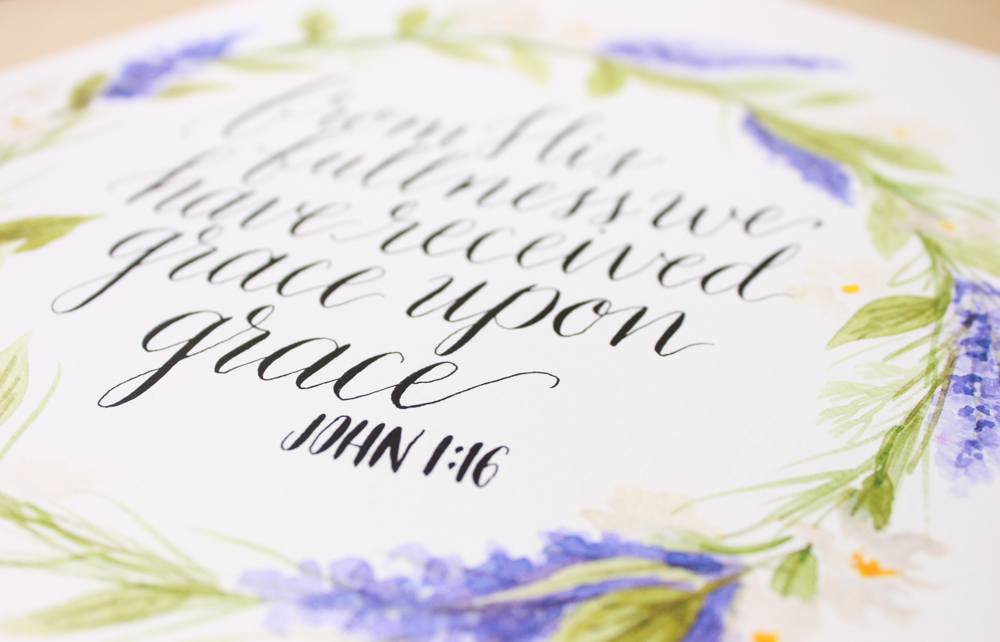 from His
fullness we
have received
grace upon
grace
JOHN 1:16